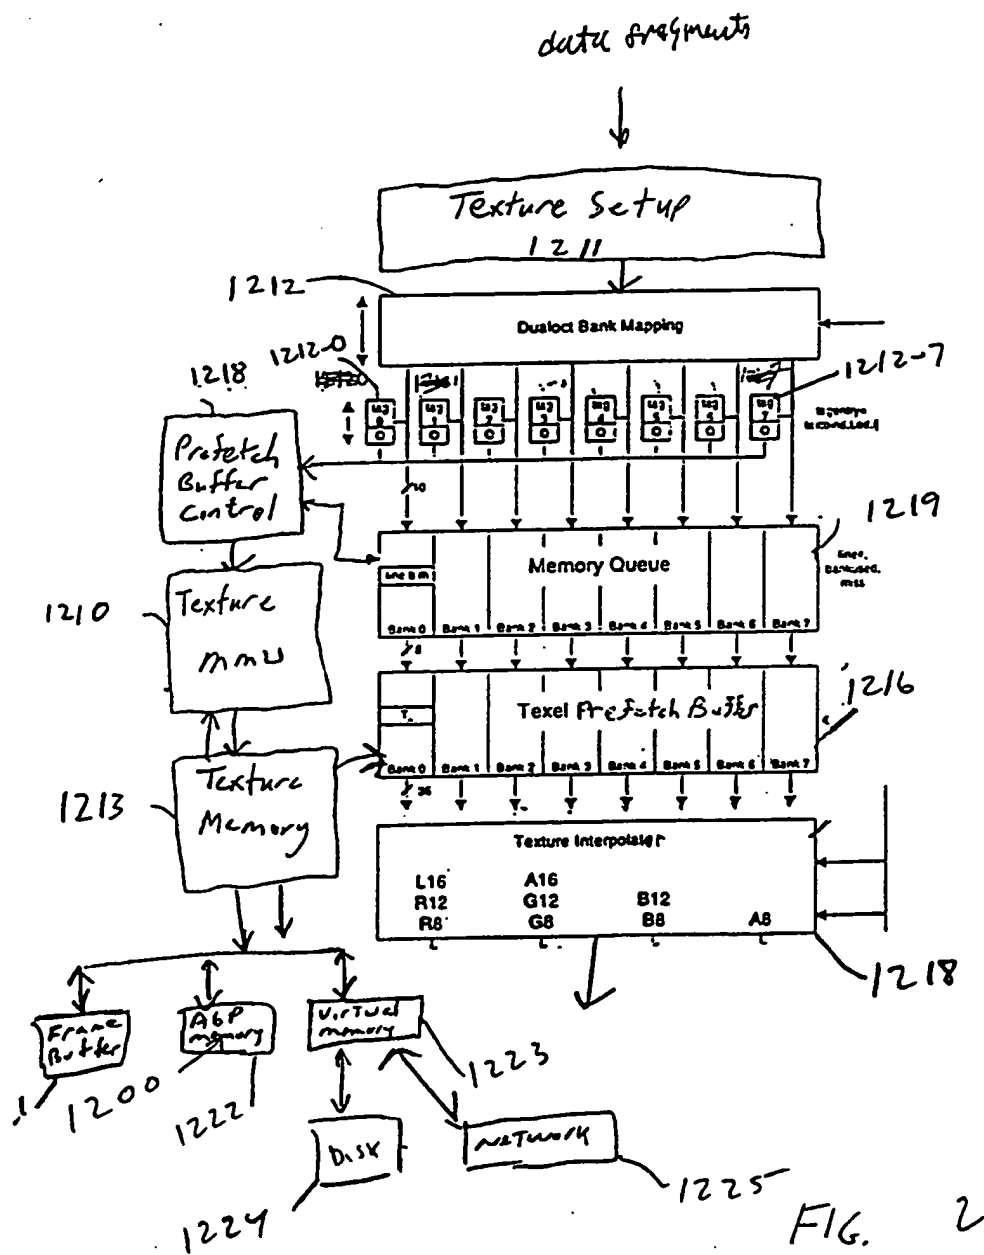 data fragments
Texture Setup
1211
1212
Dualoct Bank Mapping
1212-0
1212-7
1218
tag
0
tag
1
tag
2
tag
3
tag
4
tag
5
tag
6
tag
7
Prefetch
Buffer
control
1219
Memory Queue
Bank 0 Bank 1 Bank 2 Bank 3 Bank 4 Bank 5 Bank 6 Bank 7
miss
1210
Texture
MMU
1216
Texel Prefetch Buffer
Bank 0 Bank 1 Bank 2 Bank 3 Bank 4 Bank 5 Bank 6 Bank 7
36
1213
Texture
Memory
Texture Interpolater
L16 A16
R12 G12 B12
R8 G8 B8 A8
1218
Frame
Buffer
AGP
memory
virtual
memory
1200
1222
1223
Disk
Network
1224
1225
FIG. 2